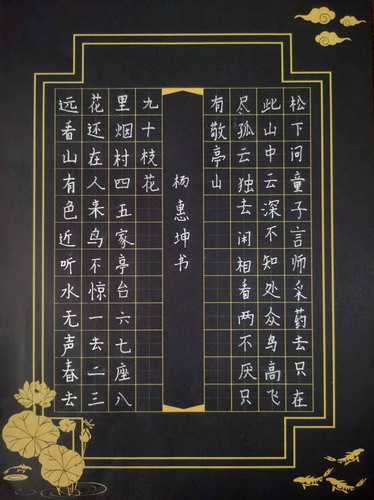 松下问童子言师采药去只在
此山中云深不知处众鸟高飞
尽孤云独去闲相看两不厌只
有敬亭山
杨惠坤书
远看山有色近听水无声春去
花还在人来鸟不惊一去二三
里烟村四五家亭台六七座八
九十枝花